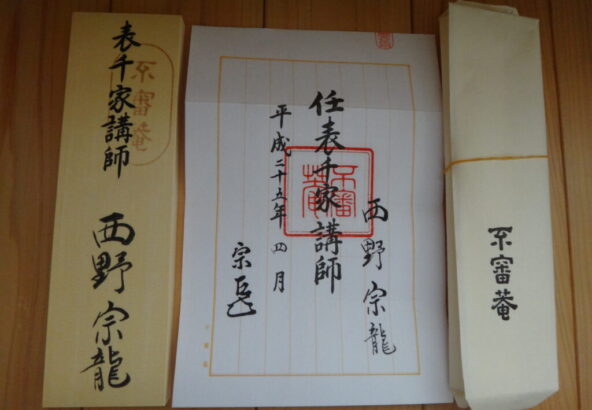 表千家講師
不審菴
西野宗龍
西野宗龍
任表千家講師
平成二十五年四月
宗
不審菴
不審菴